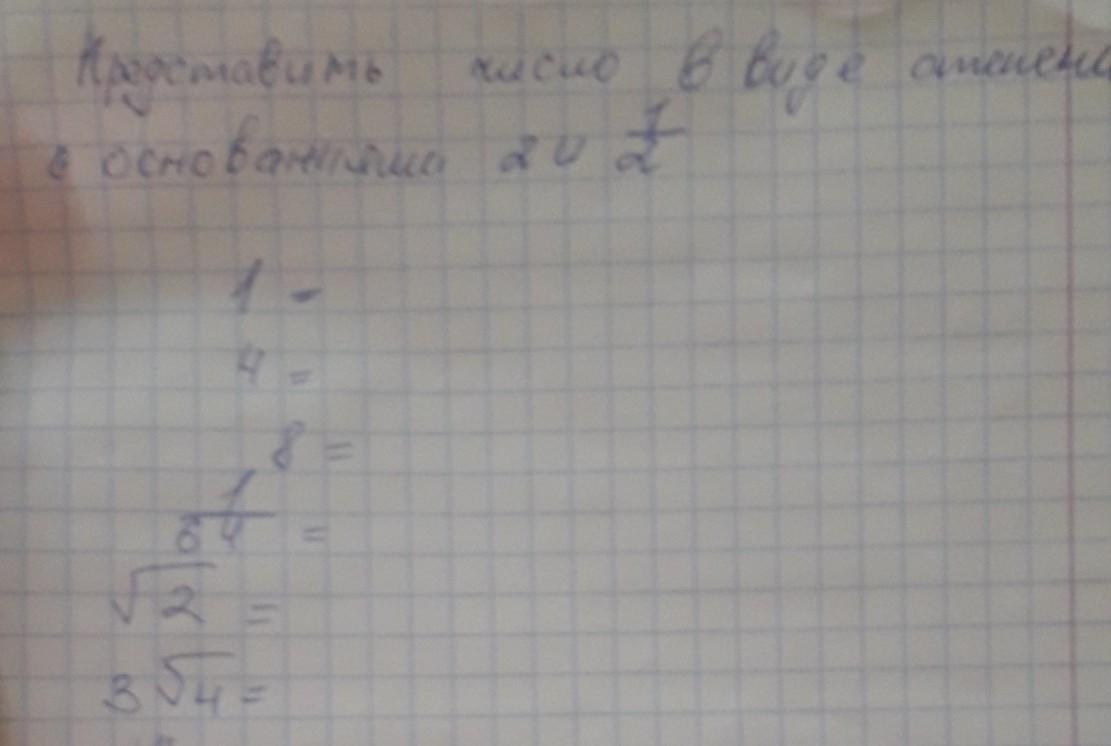 Представить число в виде степени
с основаниями 2 и 1/2
1 =
4 =
8 =
1/64 =
√2 =
3√4 =